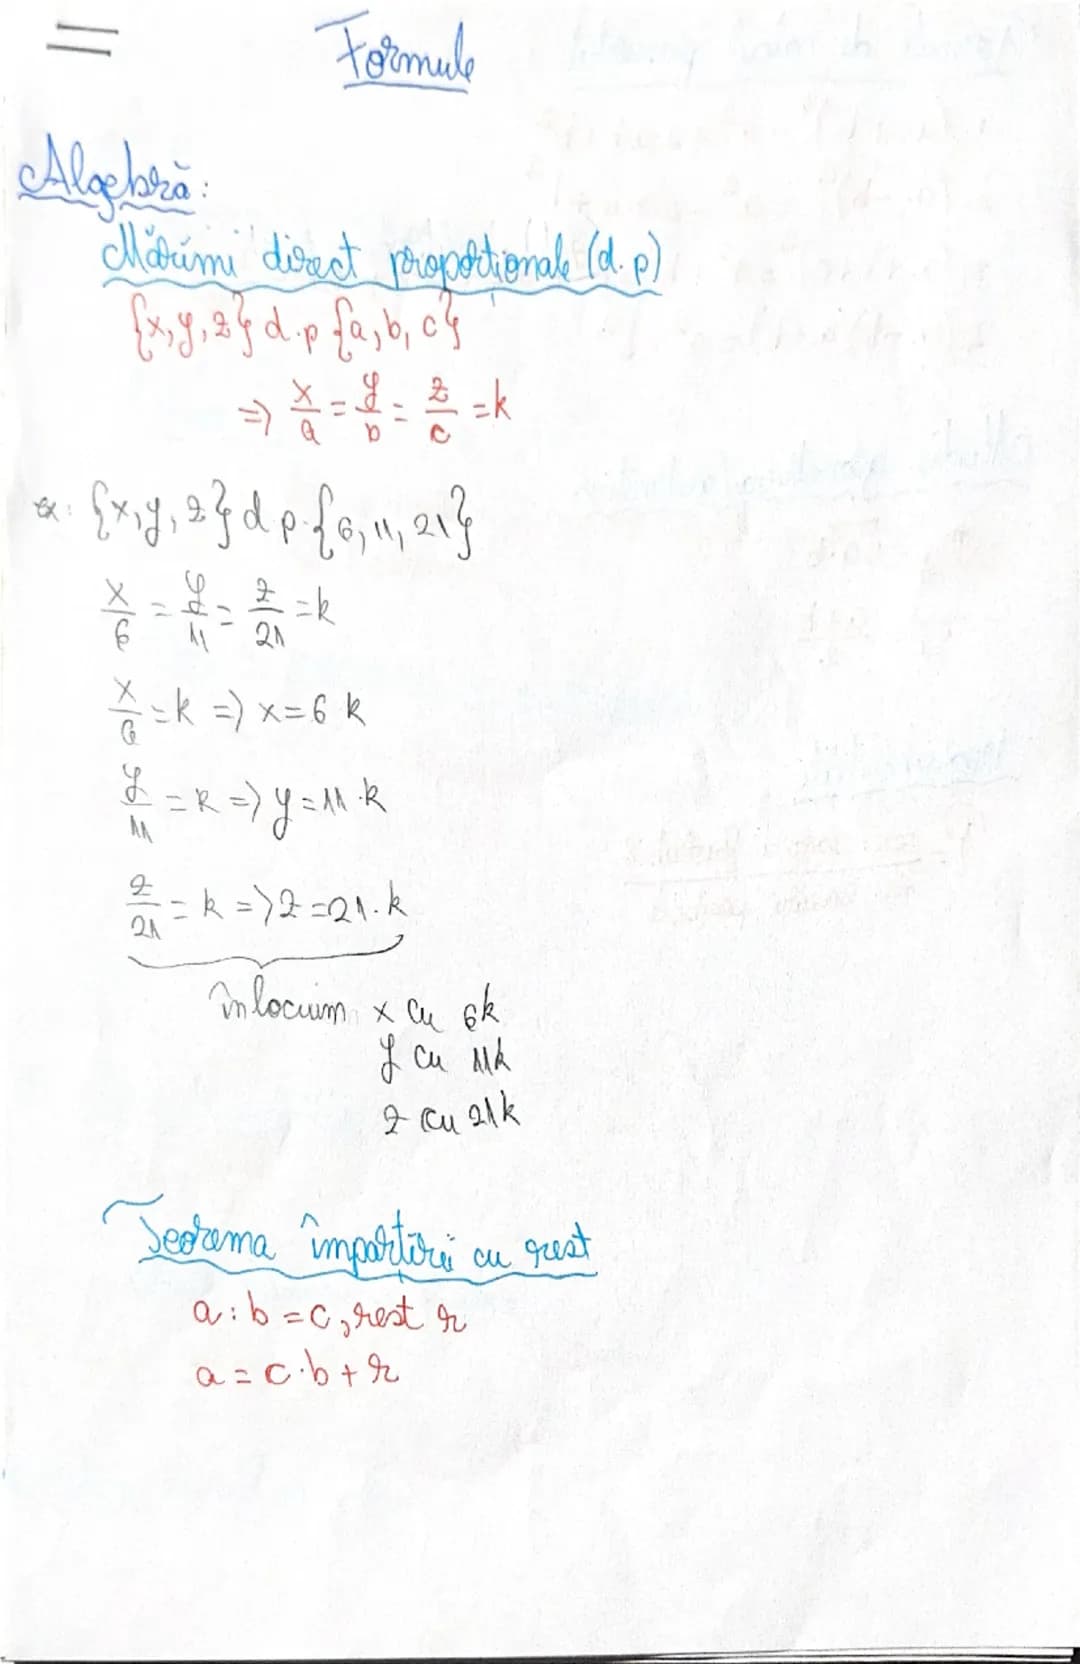 Formule
Algebră:
Mărimi direct proporționale (d.p)
{x,y,z} d.p {a,b,c}
=> x/a = y/b = z/c = k
ex: {x,y,z} d.p. {6,11,21}
x/6 = y/11 = z/21 = k
x/6 = k => x=6 k
y/11 = k => y=11·k
z/21 = k => z=21·k
înlocuim x cu 6k
y cu 11k
z cu 21k
Teorema împărțirii cu rest
a:b=c, rest r
a=c·b+r